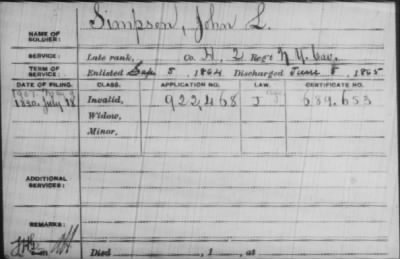 NAME OF SOLDIER: Simpson, John L.
SERVICE: Late rank, Co. H, 2 Reg't N.Y. Cav.
TERM OF SERVICE: Enlisted Sep. 5, 1864 Discharged June 5, 1865
DATE OF FILING. CLASS. APPLICATION NO. LAW. CERTIFICATE NO.
1890, July 18 Invalid, 922,468 J 689.653
Widow,
Minor,
ADDITIONAL SERVICES:
REMARKS:
Died , 1 , at